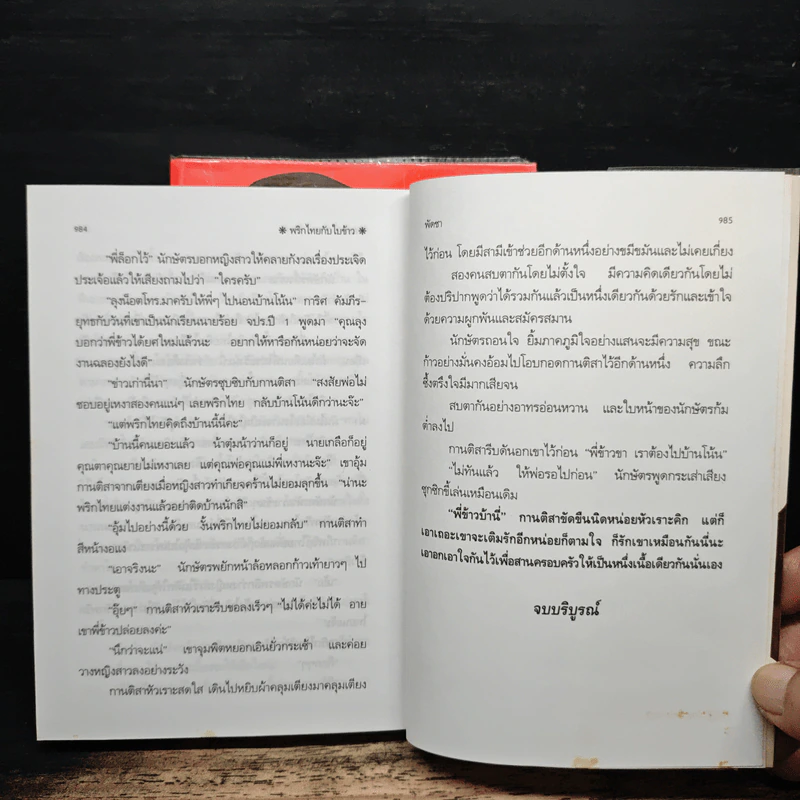 984
❋ พริกไทยกับใบข้าว ❋
"พี่ล็อกไว้" นักษัตรบอกหญิงสาวให้คลายกังวลเรื่องประเจิด
ประเจ้อแล้วให้เสียงถามไปว่า "ใครครับ"
"ลุงน็อตโทร.มาครับให้พี่ๆ ไปนอนบ้านโน้น" การิศ คัมภีร-
ยุทธกับวันที่เขาเป็นนักเรียนนายร้อย จปร.ปี 1 พูดมา "คุณลุง
บอกว่าพี่ข้าวได้ยศใหม่แล้วนะ อยากให้หารือกันหน่อยว่าจะจัด
งานฉลองยังไงดี"
"ข่าวเก่านี่นา" นักษัตรซุบซิบกับกานติสา "สงสัยพ่อไม่
ชอบอยู่เหงาสองคนแน่ๆ เลยพริกไทย กลับบ้านโน้นดีกว่านะจ๊ะ"
"แต่พริกไทยคิดถึงบ้านนี้นี่คะ"
"บ้านนี้คนเยอะแล้ว น้าตุ่มน้าว่านก็อยู่ นายเกลือก็อยู่
คุณตาคุณยายไม่เหงาเลย แต่คุณพ่อคุณแม่พี่เหงานะจ๊ะ" เขาอุ้ม
กานติสาจากเตียงเมื่อหญิงสาวทำเกียจคร้านไม่ยอมลุกขึ้น "น่านะ
พริกไทยแต่งงานแล้วอย่าติดบ้านนักสิ"
"อุ้มไปอย่างนี้ด้วย งั้นพริกไทยไม่ยอมกลับ" กานติสาทำ
สีหน้างอแง
"เอาจริงนะ" นักษัตรพยักหน้าล้อหลอกก้าวเท้ายาวๆ ไป
ทางประตู
"อุ๊ยๆ" กานติสาหัวเราะรีบขอลงเร็วๆ "ไม่ได้ค่ะไม่ได้ อาย
เขาพี่ข้าวปล่อยลงค่ะ"
"นึกว่าจะแน่" เขาจุมพิตหยอกเอินยั่วกระเซ้า และค่อย
วางหญิงสาวลงอย่างระวัง
กานติสาหัวเราะสดใส เดินไปหยิบผ้าคลุมเตียงมาคลุมเตียง
พัดชา
985
ไว้ก่อน โดยมีสามีเข้าช่วยอีกด้านหนึ่งอย่างขมีขมันและไม่เคยเกี่ยง
สองคนสบตากันโดยไม่ตั้งใจ มีความคิดเดียวกันโดยไม่
ต้องปริปากพูดว่าได้รวมกันแล้วเป็นหนึ่งเดียวกันด้วยรักและเข้าใจ
ด้วยความผูกพันและสมัครสมาน
นักษัตรถอนใจ ยิ้มภาคภูมิใจอย่างแสนจะมีความสุข ขณะ
ก้าวอย่างมั่นคงอ้อมไปโอบกอดกานติสาไว้อีกด้านหนึ่ง ความลึก
ซึ้งตรึงใจมีมากเสียจน
สบตากันอย่างอาทรอ่อนหวาน และใบหน้าของนักษัตรก้ม
ต่ำลงไป
กานติสารีบดันอกเขาไว้ก่อน "พี่ข้าวขา เราต้องไปบ้านโน้น"
"ไม่ทันแล้ว ให้พ่อรอไปก่อน" นักษัตรพูดกระเส่าเสียง
ซุกซิกขี้เล่นเหมือนเดิม
"พี่ข้าวบ้านี่" กานติสาขัดขืนนิดหน่อยหัวเราะคิก แต่ก็
เอาเถอะเขาจะเติมรักอีกหน่อยก็ตามใจ ก็รักเขาเหมือนกันนี่นะ
เอาอกเอาใจกันไว้เพื่อสานครอบครัวให้เป็นหนึ่งเนื้อเดียวกันนั่นเอง
จบบริบูรณ์